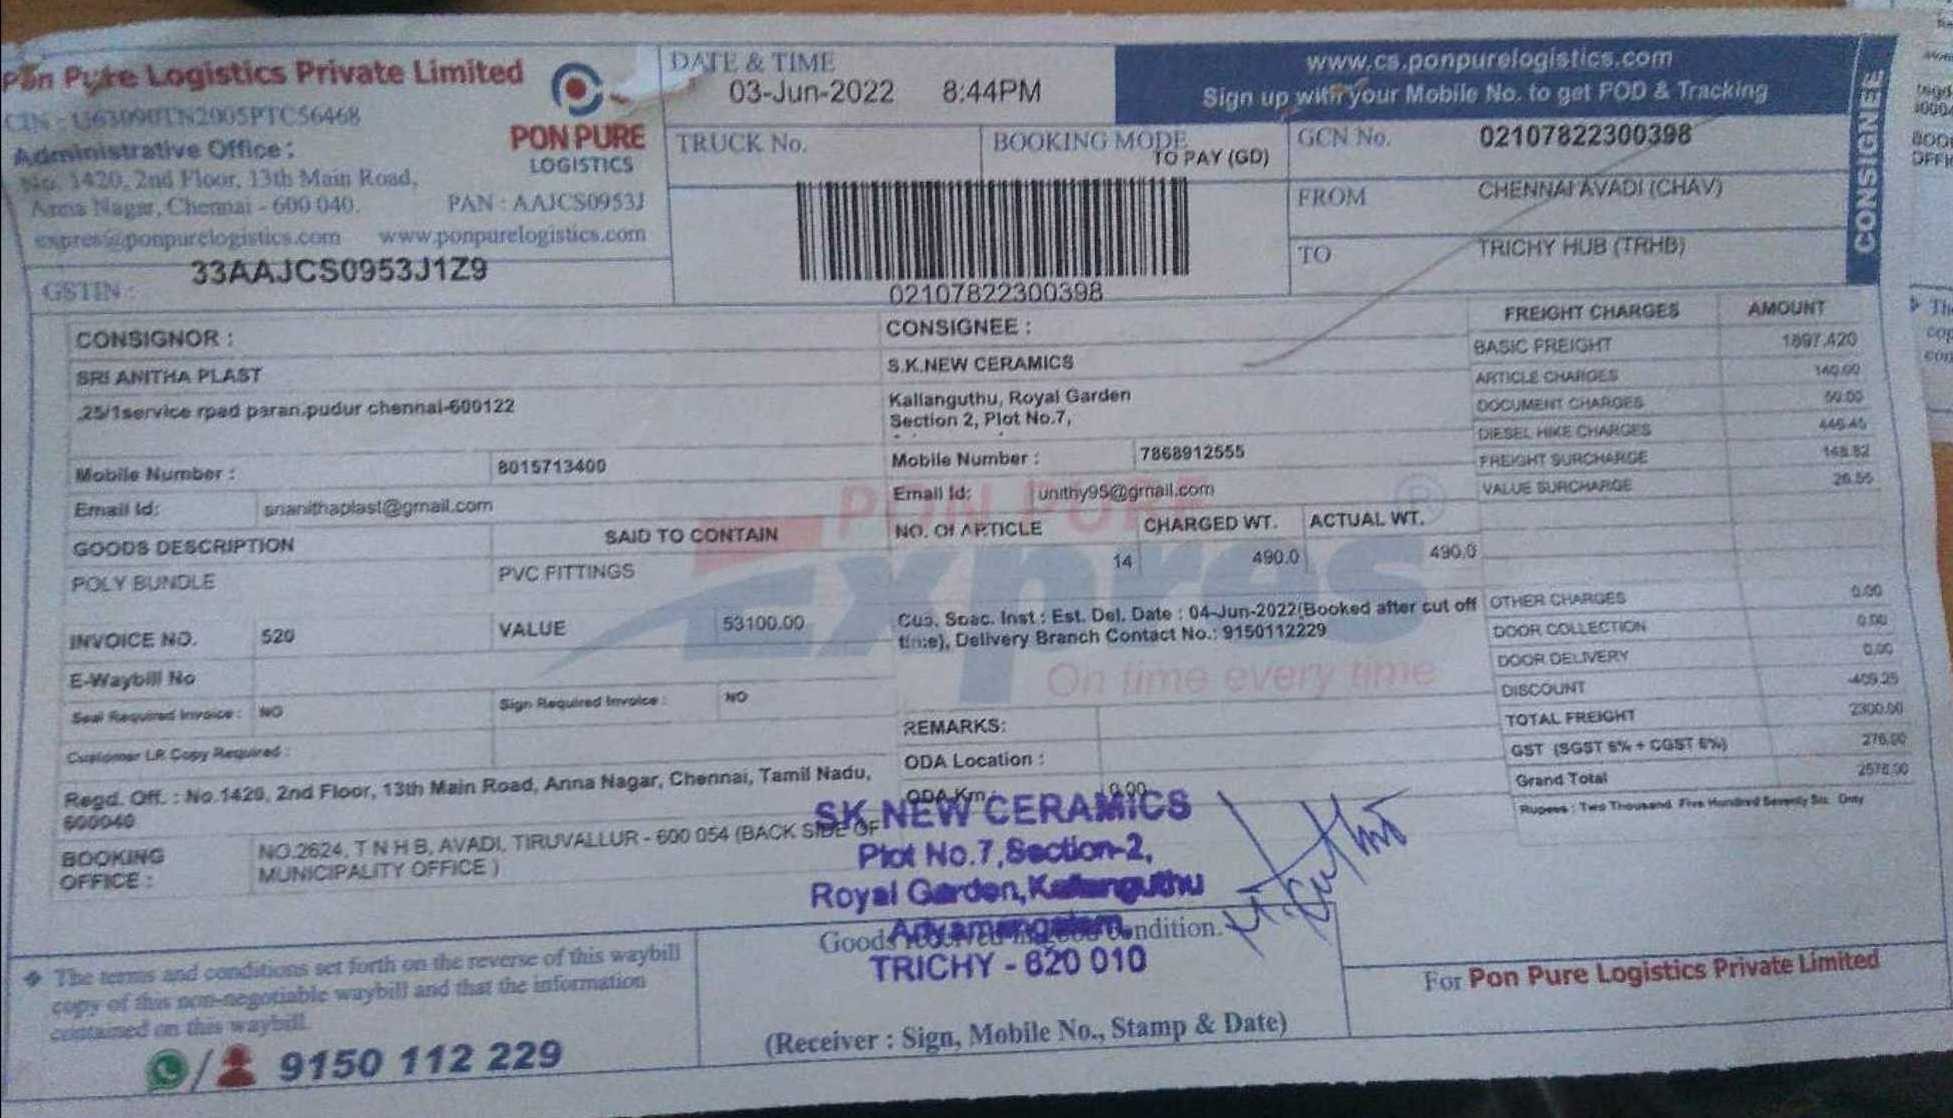 Pon Pure Logistics Private Limited
CIN : U63090TN2005PTC56468
Administrative Office :
No. 1420, 2nd Floor, 13th Main Road,
Anna Nagar, Chennai - 600 040.
PAN : AAJCS0953J
expres@ponpurelogistics.com www.ponpurelogistics.com
GSTIN : 33AAJCS0953J1Z9
PON PURE
LOGISTICS
DATE & TIME
03-Jun-2022 8:44PM
www.cs.ponpurelogistics.com
Sign up with your Mobile No. to get POD & Tracking
CONSIGNEE
TRUCK No.
BOOKING MODE
TO PAY (GD)
GCN No. 02107822300398
FROM CHENNAI AVADI (CHAV)
TO TRICHY HUB (TRHB)
02107822300398
CONSIGNOR :
SRI ANITHA PLAST
,25/1service rpad paran,pudur chennai-600122
Mobile Number : 8015713400
Email Id: snanithaplast@gmail.com
CONSIGNEE :
S.K.NEW CERAMICS
Kallanguthu, Royal Garden
Section 2, Plot No.7,
Mobile Number : 7868912555
Email Id: unithy95@gmail.com
GOODS DESCRIPTION SAID TO CONTAIN
POLY BUNDLE PVC FITTINGS
NO. Of ARTICLE CHARGED WT. ACTUAL WT.
14 490.0 490.0
INVOICE NO. 520 VALUE 53100.00
Cus. Spac. Inst : Est. Del. Date : 04-Jun-2022(Booked after cut off
time), Delivery Branch Contact No.: 9150112229
E-Waybill No
Seal Required Invoice : NO Sign Required Invoice : NO
Customer LR Copy Required :
REMARKS:
ODA Location :
ODA Km : 0.00
Regd. Off. : No.1420, 2nd Floor, 13th Main Road, Anna Nagar, Chennai, Tamil Nadu,
600040
BOOKING
OFFICE :
NO.2624, T N H B, AVADI, TIRUVALLUR - 600 054 (BACK SIDE OF
MUNICIPALITY OFFICE )
FREIGHT CHARGES AMOUNT
BASIC FREIGHT 1897.420
ARTICLE CHARGES 140.00
DOCUMENT CHARGES 50.00
DIESEL HIKE CHARGES 446.45
FREIGHT SURCHARGE 148.82
VALUE SURCHARGE 26.55
OTHER CHARGES 0.00
DOOR COLLECTION 0.00
DOOR DELIVERY 0.00
DISCOUNT -409.25
TOTAL FREIGHT 2300.00
GST (SGST 6% + CGST 6%) 276.00
Grand Total 2576.00
Rupees : Two Thousand Five Hundred Seventy Six Only
PON PURE
Expres ®
On time every time
SK NEW CERAMICS
Plot No.7,Section-2,
Royal Garden,Kallanguthu
Ariyamangalam,
TRICHY - 620 010
Goods received in good condition.
(Receiver : Sign, Mobile No., Stamp & Date)
The terms and conditions set forth on the reverse of this waybill
copy of this non-negotiable waybill and that the information
contained on this waybill.
9150 112 229
For Pon Pure Logistics Private Limited